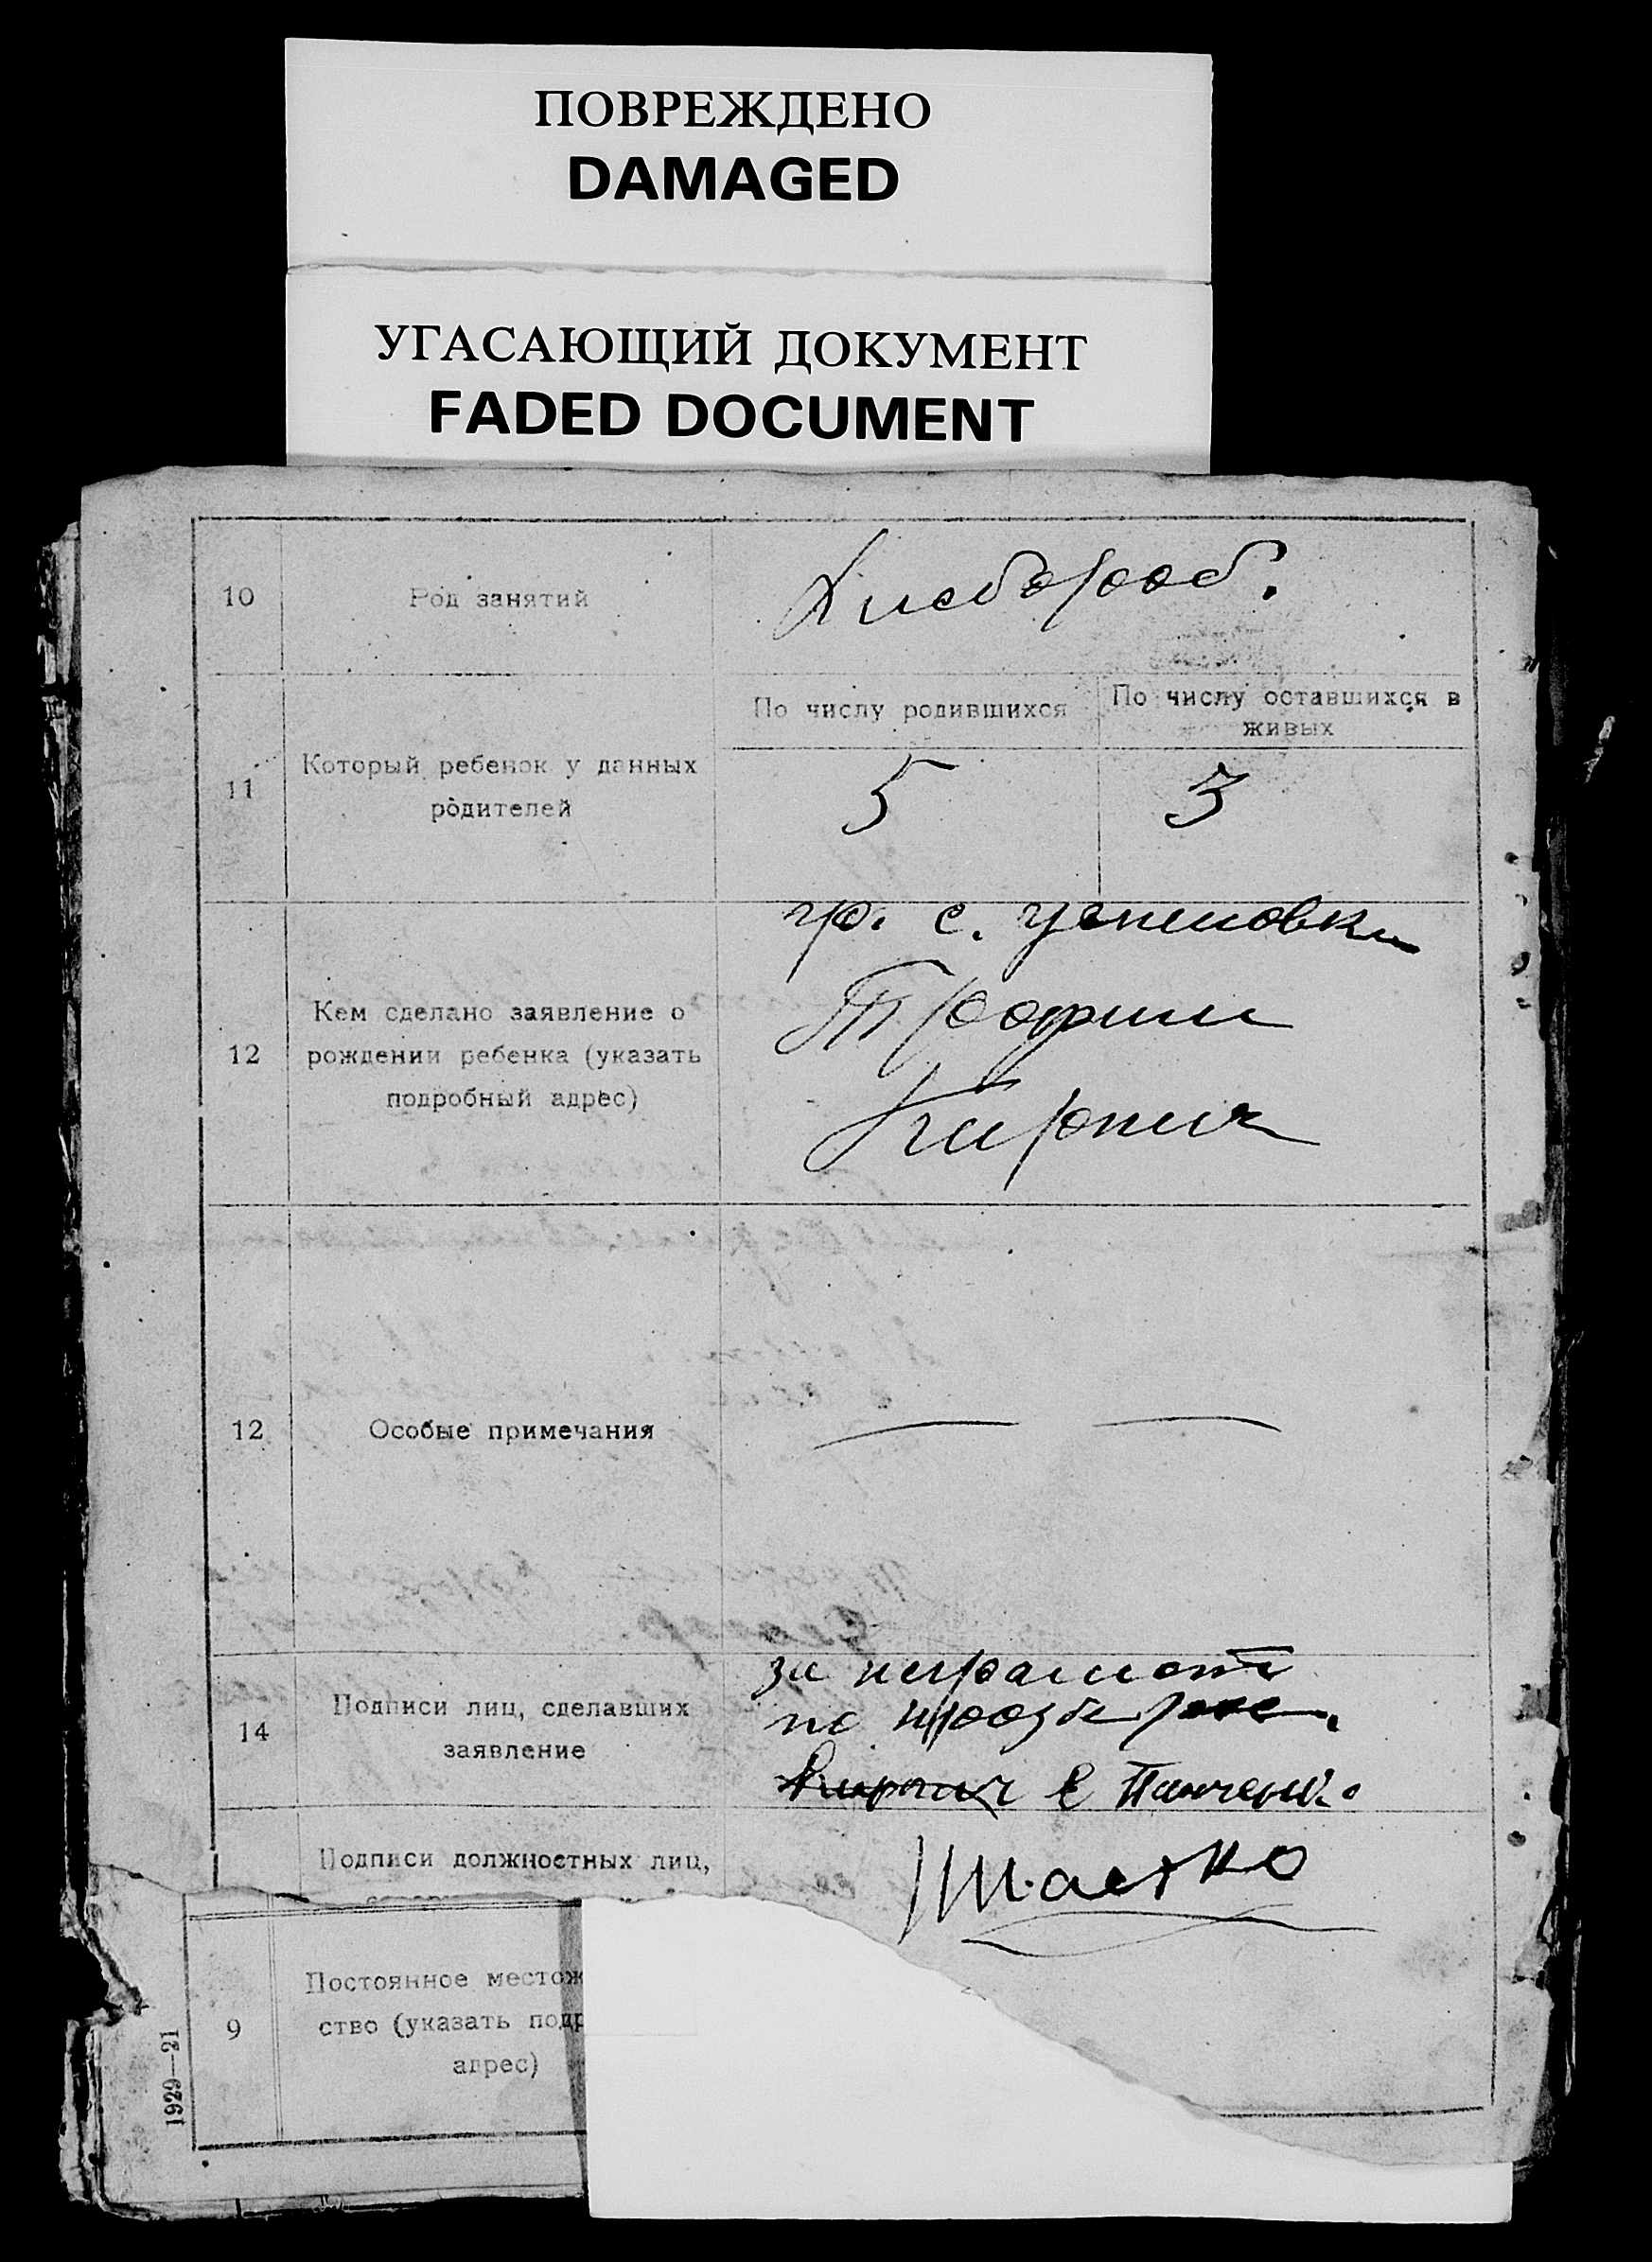 ПОВРЕЖДЕНО
DAMAGED
УГАСАЮЩИЙ ДОКУМЕНТ
FADED DOCUMENT
10
Род занятий
Хлебороб.
11
Который ребенок у данных
родителей
По числу родившихся
По числу оставшихся в
живых
5
3
12
Кем сделано заявление о
рождении ребенка (указать
подробный адрес)
гр. с. Успеновки
Трофим
Кирпич
12
Особые примечания
— —
14
Подписи лиц, сделавших
заявление
за неграмотн
по прозбе
Кирпич Е Панченко
Подписи должностных лиц,
9
Постоянное местож
ство (указать подр
адрес)
1929—21